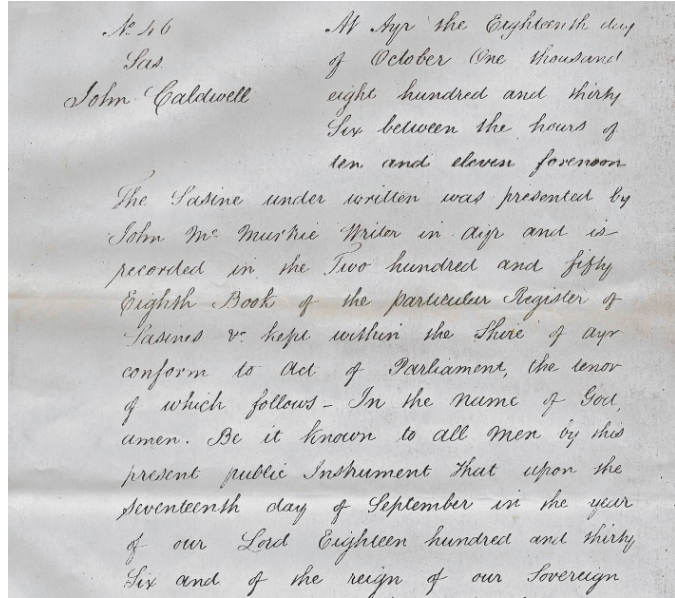 No. 46
Sas.
John Caldwell
At Ayr the Eighteenth day
of October One thousand
eight hundred and thirty
Six between the hours of
ten and eleven forenoon
The Sasine under written was presented by
John Mc Murkie Writer in Ayr and is
recorded in the Two hundred and fifty
Eighth Book of the particular Register of
Sasines &c. kept within the Shire of Ayr
conform to Act of Parliament, the tenor
of which follows - In the Name of God,
amen. Be it known to all Men by this
present public Instrument That upon the
seventeenth day of September in the year
of our Lord Eighteen hundred and thirty
Six and of the reign of our Sovereign